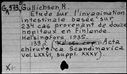 G,573 Gullichsen R.
Etude sur l'invagination
intestinale basée sur
234 cas provenant de douze
hopitaux en Finlande.
Helsingfors 1935.
138 s. Acta
chirurgica Scandinavica
vol. LXXVI, suppl. XXXV)